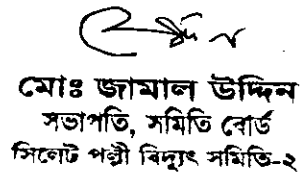 মোঃ জামাল উদ্দিন
সভাপতি, সমিতি বোর্ড
সিলেট পল্লী বিদ্যুৎ সমিতি-২